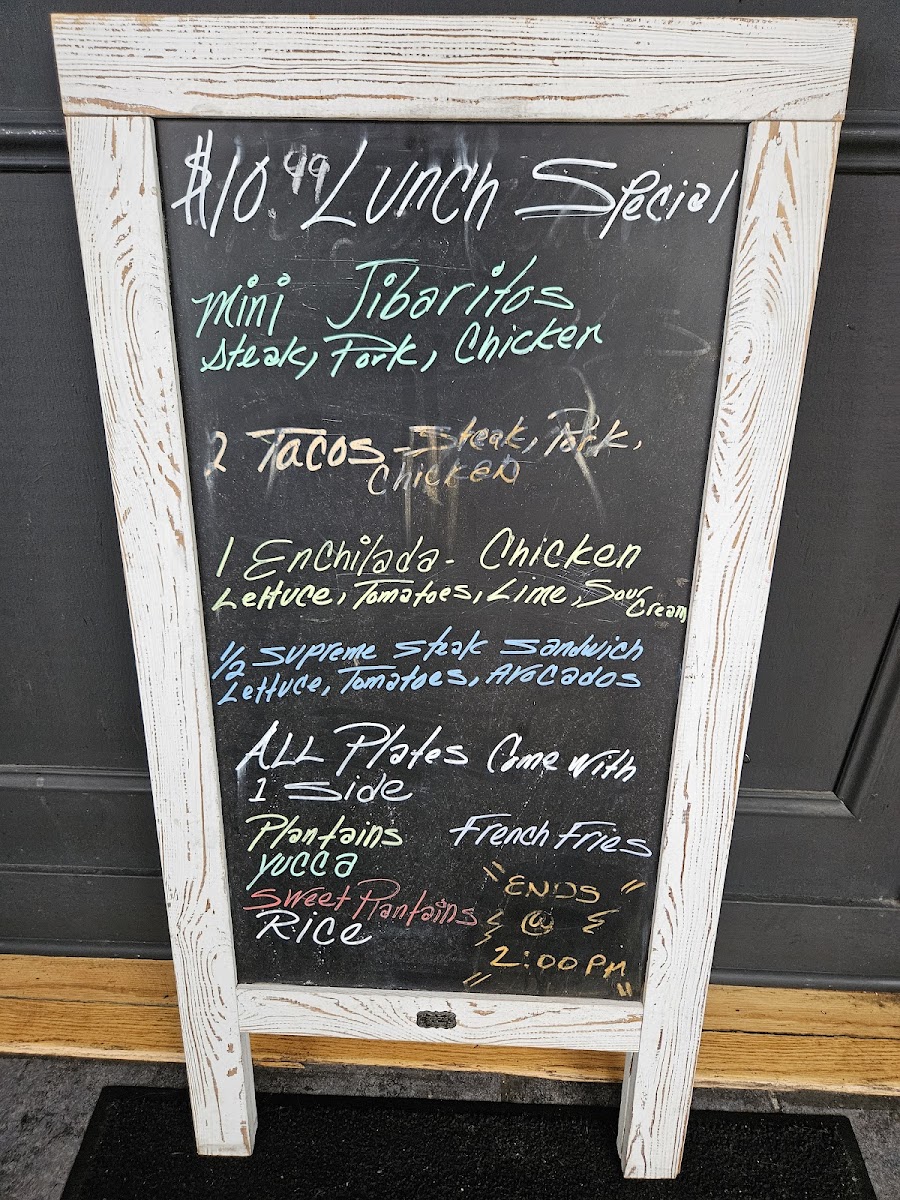 $10.99 Lunch Special
Mini Jibaritos
Steak, Pork, Chicken
2 Tacos - Steak, Pork,
Chicken
1 Enchilada - Chicken
Lettuce, Tomatoes, Lime, Sour Cream
1/2 Supreme Steak Sandwich
Lettuce, Tomatoes, Avocados
ALL Plates Come With
1 Side
Plantains
French Fries
Yucca
Sweet Plantains
Rice
"ENDS"
@
2:00 PM